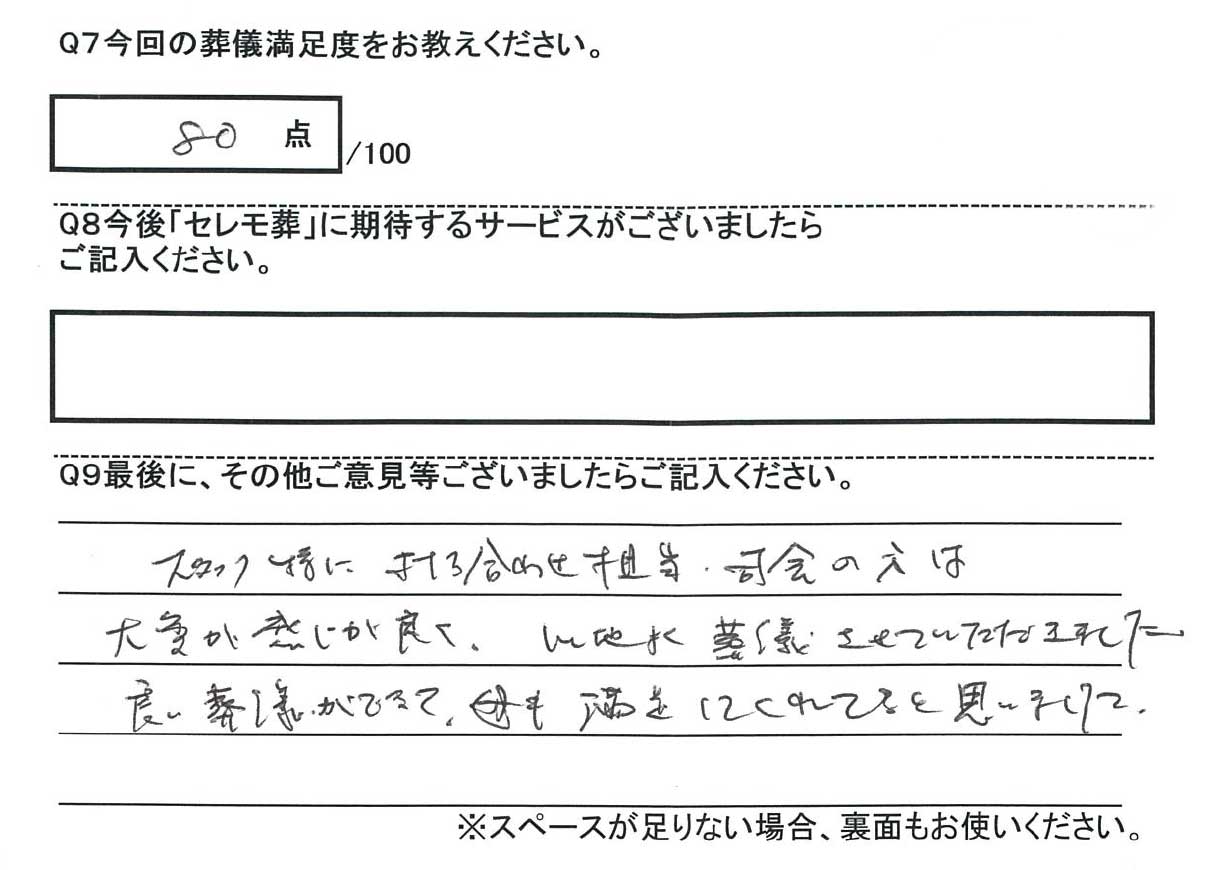 Q7今回の葬儀満足度をお教えください。
80 点 /100
Q8今後「セレモ葬」に期待するサービスがございましたら
ご記入ください。
Q9最後に、その他ご意見等ございましたらご記入ください。
スタッフ様に 打ち合わせ担当、司会の方は
大変が感じが良く、 葬儀させていただきました
良い葬儀ができて、母も満足してくれてると思いまして。
※スペースが足りない場合、裏面もお使いください。